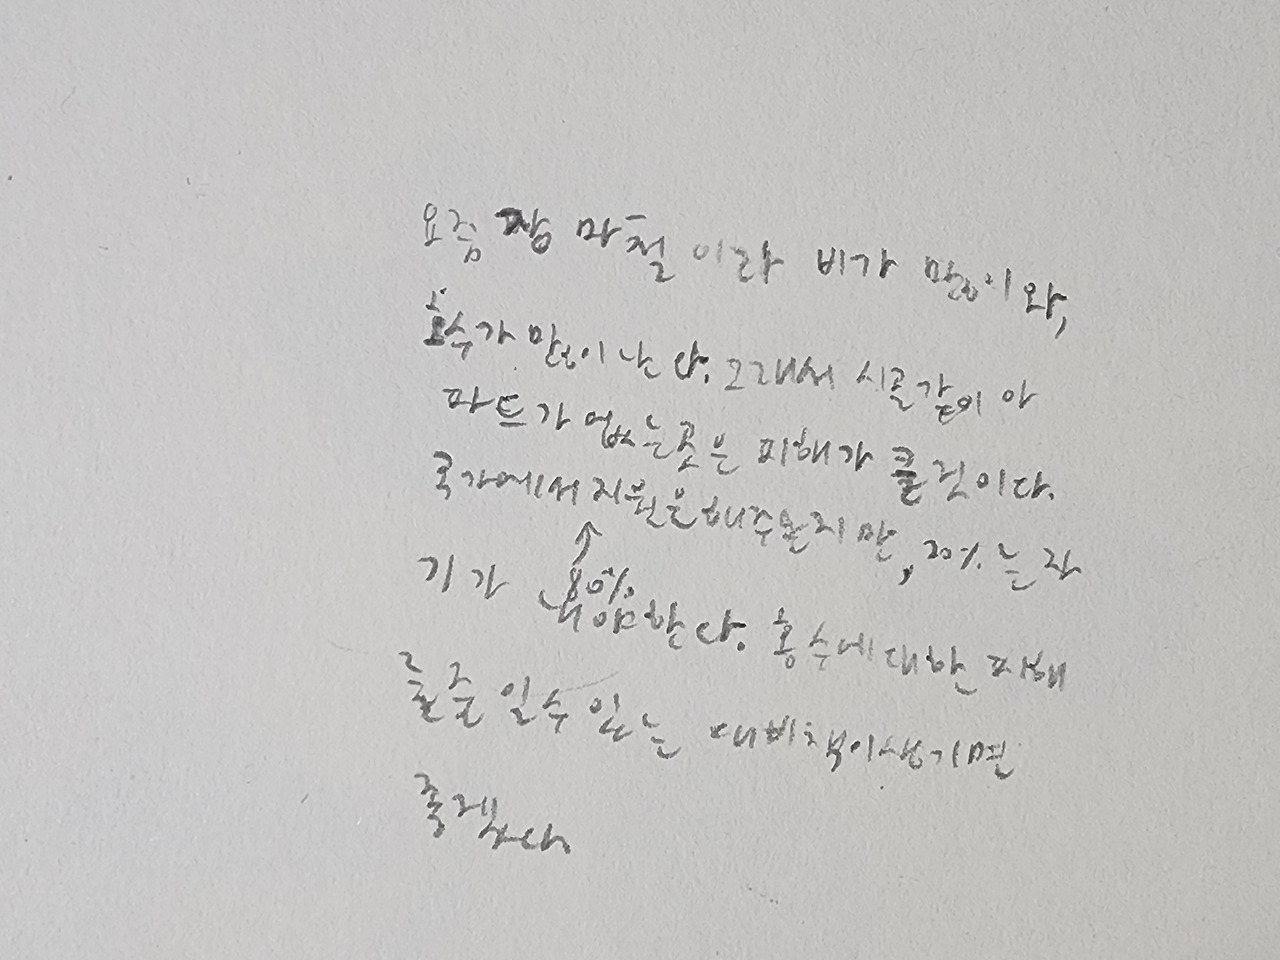 요즘 장마철이라 비가 많이와,
홍수가 많이 난다. 그래서 시골같이 아
파트가 없는곳은 피해가 클것이다.
국가에서 지원은해주론지만, 20%는 자
↑
80%
기가 내야한다. 홍수에대한 피해
를 줄일수있는 대비책이생기면
좋겠다.